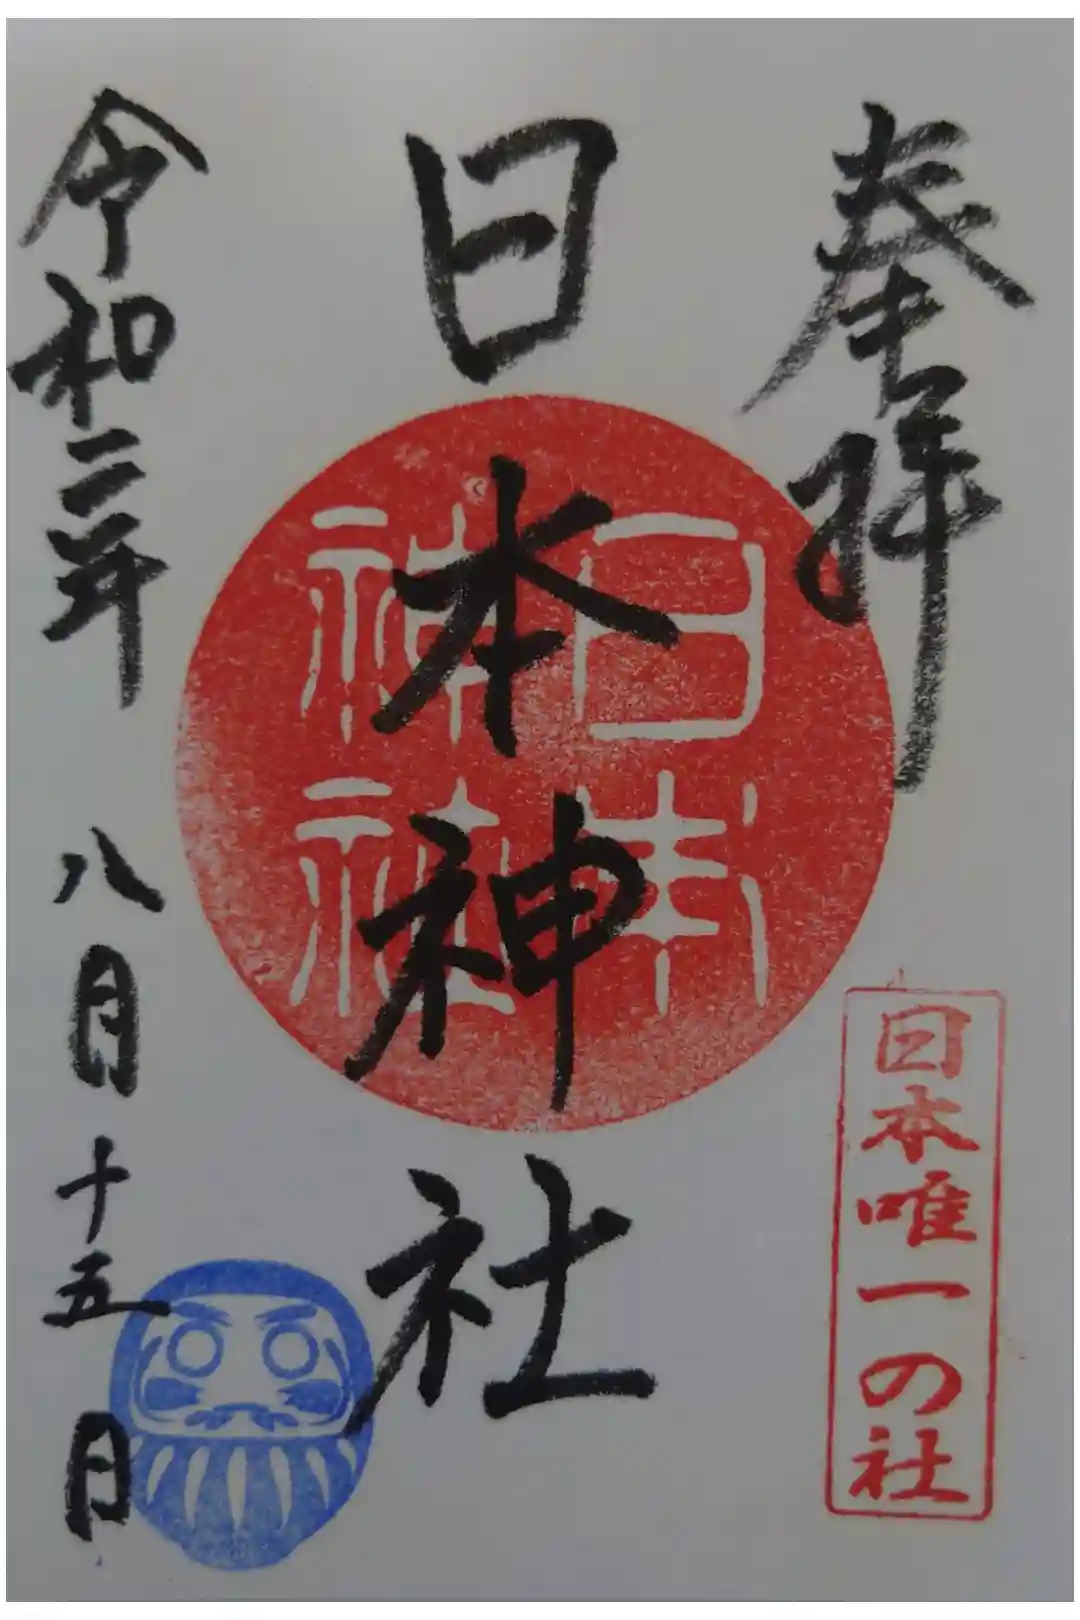 奉拝
日本唯一の社
日本
神社
日本神社
令和二年 八月十五日